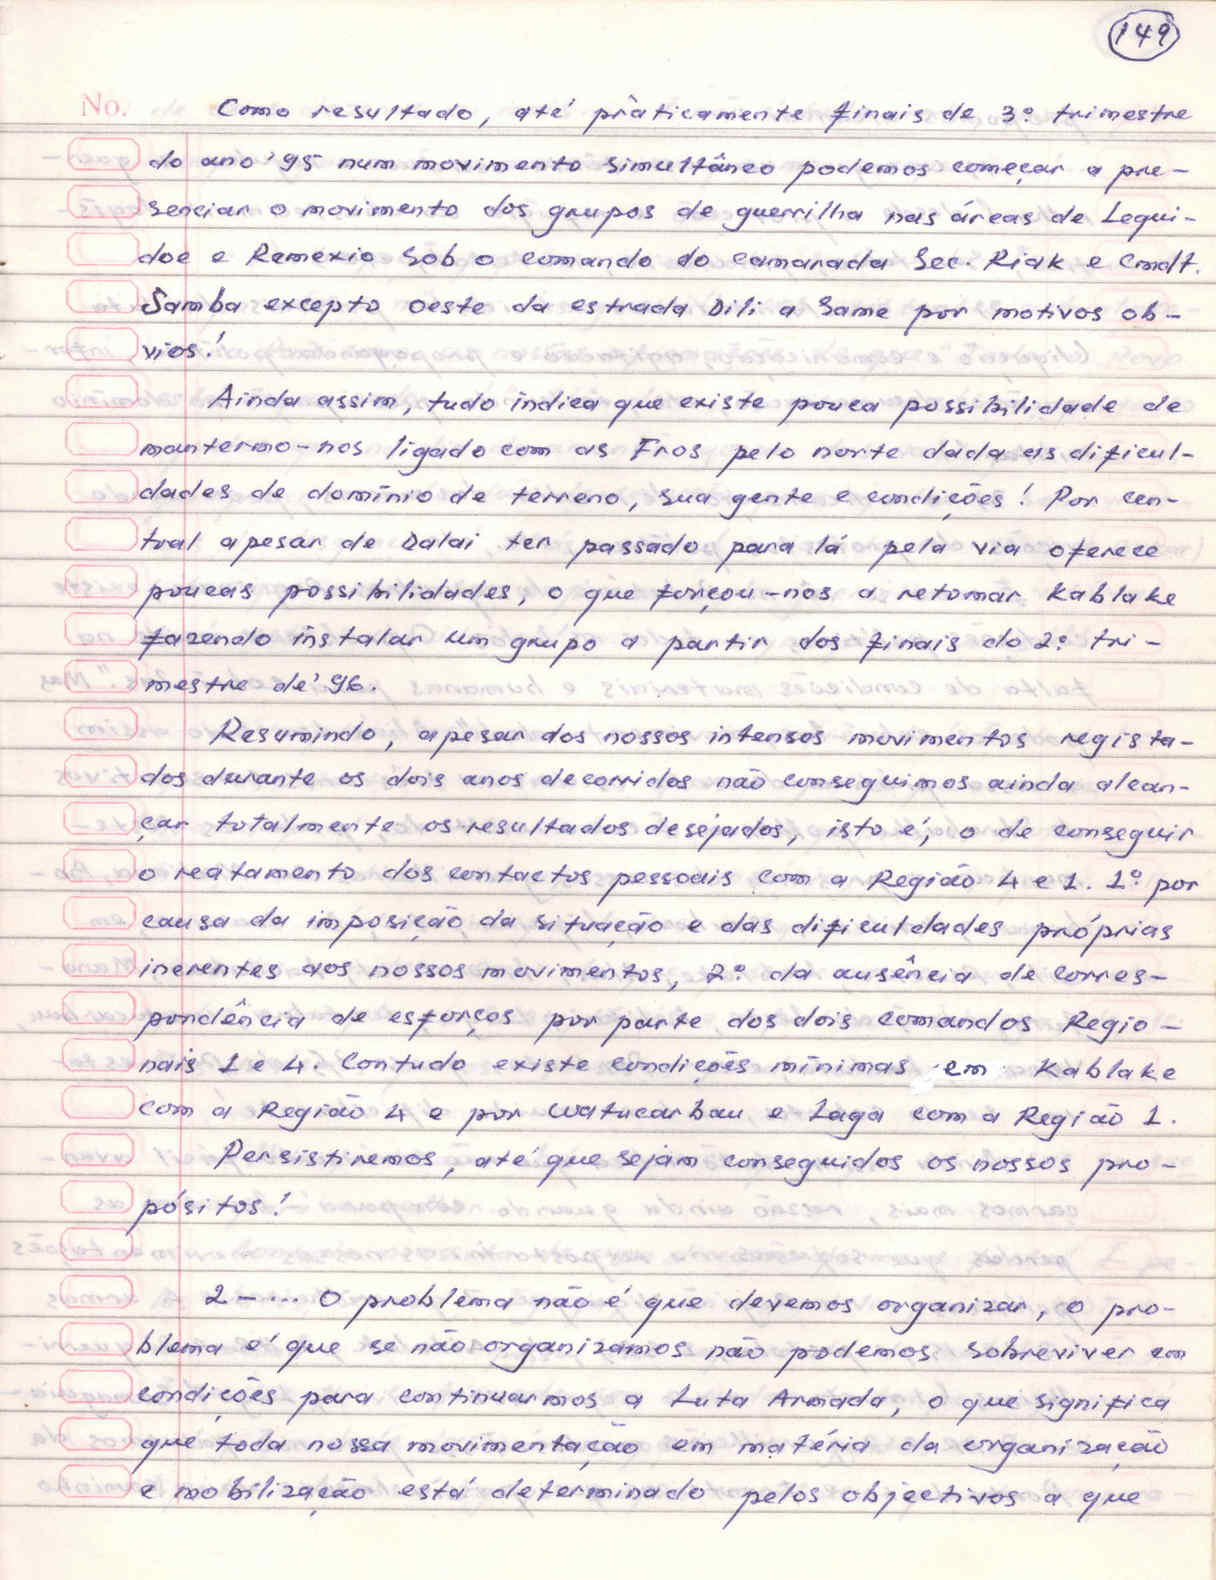 149
No. Como resultado, até pràticamente finais de 3º trimestre
do ano '95 num movimento simultâneo podemos começar a pre-
senciar o movimento dos grupos de guerrilha nas áreas de Lequi-
doe e Remexio sob o comando do camarada Sec. Riak e Cmdt.
Samba excepto oeste da estrada Dili a Same por motivos ób-
vios!
Ainda assim, tudo indica que existe pouca possibilidade de
mantermo-nos ligado com as Fros pelo norte dada as dificul-
dades de domínio de terreno, sua gente e condições! Por cen-
tral apesar de Dalai ter passado para lá pela via oferece
poucas possibilidades, o que forçou-nos a retomar Kablake
fazendo instalar um grupo a partir dos finais do 2º tri-
mestre de '96.
Resumindo, apesar dos nossos intensos movimentos regista-
dos durante os dois anos decorridos não conseguimos ainda alcan-
çar totalmente os resultados desejados, isto é, o de conseguir
o reatamento dos contactos pessoais com a Região 4 e 1. 1º por
causa da imposição da situação e das dificuldades próprias
inerentes aos nossos movimentos, 2º da ausência de corres-
pondência de esforços por parte dos dois comandos Regio-
nais 1 e 4. Contudo existe condições mínimas em Kablake
com a Região 4 e por Watucarbau e Laga com a Região 1.
Persistiremos, até que sejam conseguidos os nossos pro-
pósitos!
2 - ... O problema não é que devemos organizar, o pro-
blema é que se não organizamos não podemos sobreviver em
condições para continuarmos a Luta Armada, o que significa
que toda nossa movimentação em matéria da organização
e mobilização está determinado pelos objectivos a que